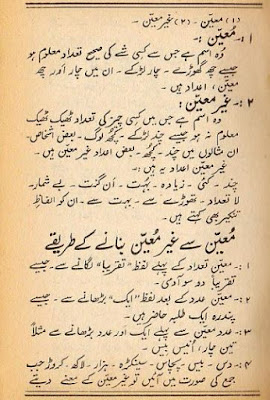 (۱) معیّن - (۲) غیر معیّن
۱ :- مُعیّن :
وہ اسم ہے جس سے کسی شے کی صحیح تعداد معلوم ہو
جیسے چھ گھوڑے - چار لڑکے - ان میں چار اور چھ
معیّن، اعداد ہیں -
۲ :- غیر معیّن :
وہ اسم ہے جس میں کسی چیز کی تعداد ٹھیک ٹھیک
معلوم نہ ہو جیسے چند لڑکے - کچھ لوگ - بعض اشخاص -
ان مثالوں میں چند - کچھ - بعض اعداد غیر معیّن ہیں -
غیر معیّن اعداد یہ ہیں :-
چند - کئی - زیادہ - بہت - اَن گنت - بے شمار -
لا تعداد - تھوڑے سے - بہت سے - ان کو الفاظِ
تنکیر بھی کہتے ہیں -
مُعیّن سے غیر مُعیّن بنانے کے طریقے
۱ :- معیّن تعداد کے پہلے لفظ "تقریباً" لگانے سے - جیسے
تقریباً دو سو آدمی -
۲ :- معیّن عدد کے بعد لفظ "ایک" بڑھانے سے - جیسے
پندرہ ایک طلبہ حاضر ہیں -
۳ :- عدد معیّن سے پہلے ایک اور عدد بڑھانے سے مثلاً
تین چار، اُنیس بیس
۴ :- دس - بیس - پچاس - سینکڑہ - ہزار - لاکھ - کروڑ جب
جمع کی صورت میں آئیں تو غیر معیّن کے معنے دیتے